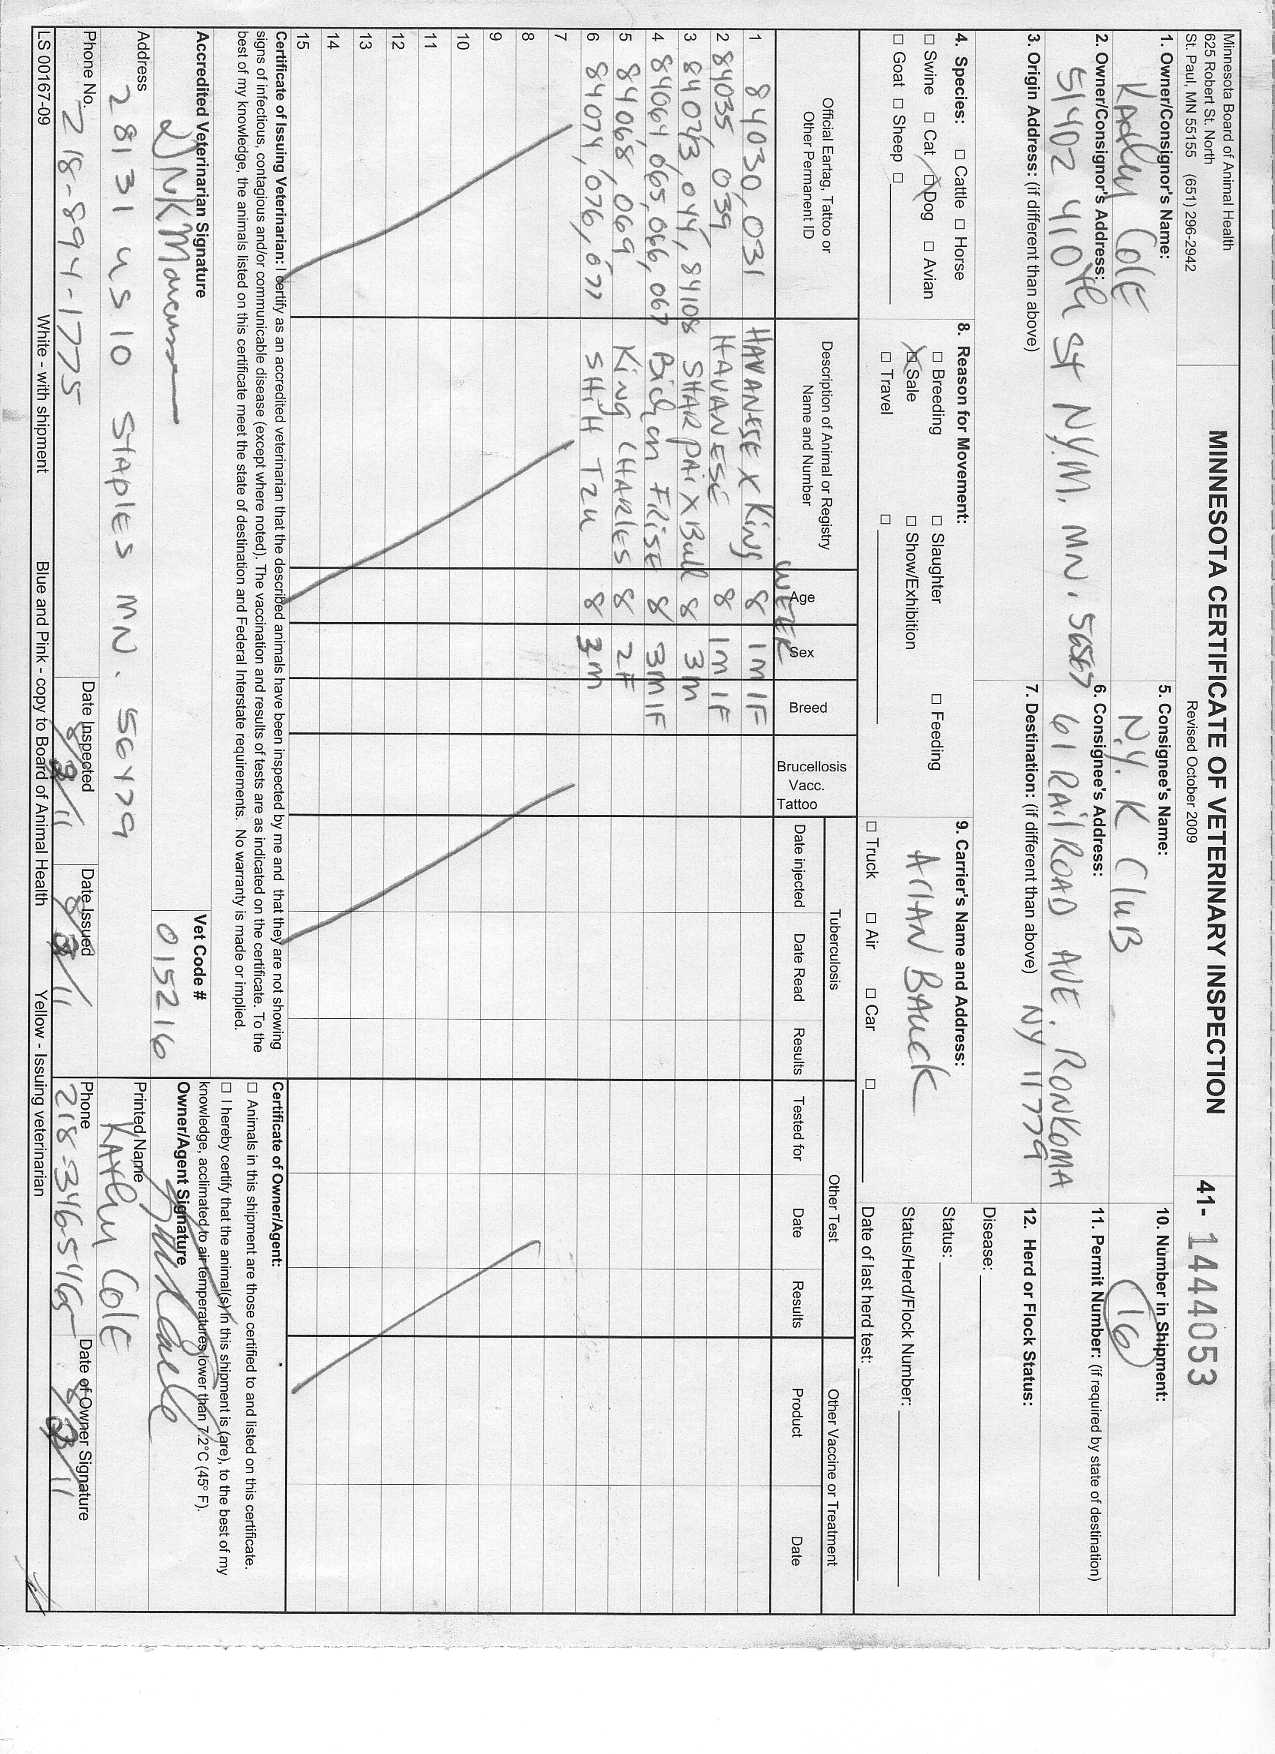 Minnesota Board of Animal Health
625 Robert St. North
St. Paul, MN 55155 (651) 296-2942
MINNESOTA CERTIFICATE OF VETERINARY INSPECTION
Revised October 2009
41- 1444053
1. Owner/Consignor's Name:
Kathy Cole
5. Consignee's Name:
N.Y. K Club
10. Number in Shipment:
16
2. Owner/Consignor's Address:
51402 410th St N.Y.M. MN. 56567
6. Consignee's Address:
61 RailRoad Ave. Ronkoma
NY 11779
11. Permit Number: (if required by state of destination)
3. Origin Address: (if different than above)
7. Destination: (if different than above)
12. Herd or Flock Status:
Disease:
Status:
Status/Herd/Flock Number:
Date of last herd test:
4. Species: □ Cattle □ Horse
□ Swine □ Cat ☒ Dog □ Avian
□ Goat □ Sheep □
8. Reason for Movement:
□ Breeding □ Slaughter □ Feeding
☒ Sale □ Show/Exhibition
□ Travel □
9. Carrier's Name and Address:
Arlan Bauck
□ Truck □ Air □ Car □
Official Eartag, Tattoo or Other Permanent ID
Description of Animal or Registry Name and Number
Age
Week
Sex
Breed
Brucellosis Vacc. Tattoo
Tuberculosis
Date injected
Date Read
Results
Other Test
Tested for
Date
Results
Other Vaccine or Treatment
Product
Date
1 84030, 031 HAVANESE X King 8 1M 1F
2 84035, 039 HAVANESE 8 1M 1F
3 84043, 044, 84108 SHAR PAi X Bull 8 3M
4 84064, 065, 066, 067 Bichon Frise 8 3M 1F
5 84068, 069 King CHARLES 8 2F
6 84074, 076, 077 SHiH TZu 8 3M
7
8
9
10
11
12
13
14
15
Certificate of Issuing Veterinarian: I certify as an accredited veterinarian that the described animals have been inspected by me and that they are not showing
signs of infectious, contagious and/or communicable disease (except where noted). The vaccination and results of tests are as indicated on the certificate. To the
best of my knowledge, the animals listed on this certificate meet the state of destination and Federal Interstate requirements. No warranty is made or implied.
Accredited Veterinarian Signature
Vet Code #
015216
Address
28131 US 10 STAPLES MN. 56479
Phone No.
218-894-1775
Date Inspected
Date Issued
Certificate of Owner/Agent:
□ Animals in this shipment are those certified to and listed on this certificate.
□ I hereby certify that the animal(s) in this shipment is (are), to the best of my
knowledge, acclimated to air temperatures lower than 7.2°C (45° F).
Owner/Agent Signature
Printed Name
Kathy Cole
Phone
218-346-5465
Date of Owner Signature
LS 00167-09
White - with shipment
Blue and Pink - copy to Board of Animal Health
Yellow - Issuing veterinarian